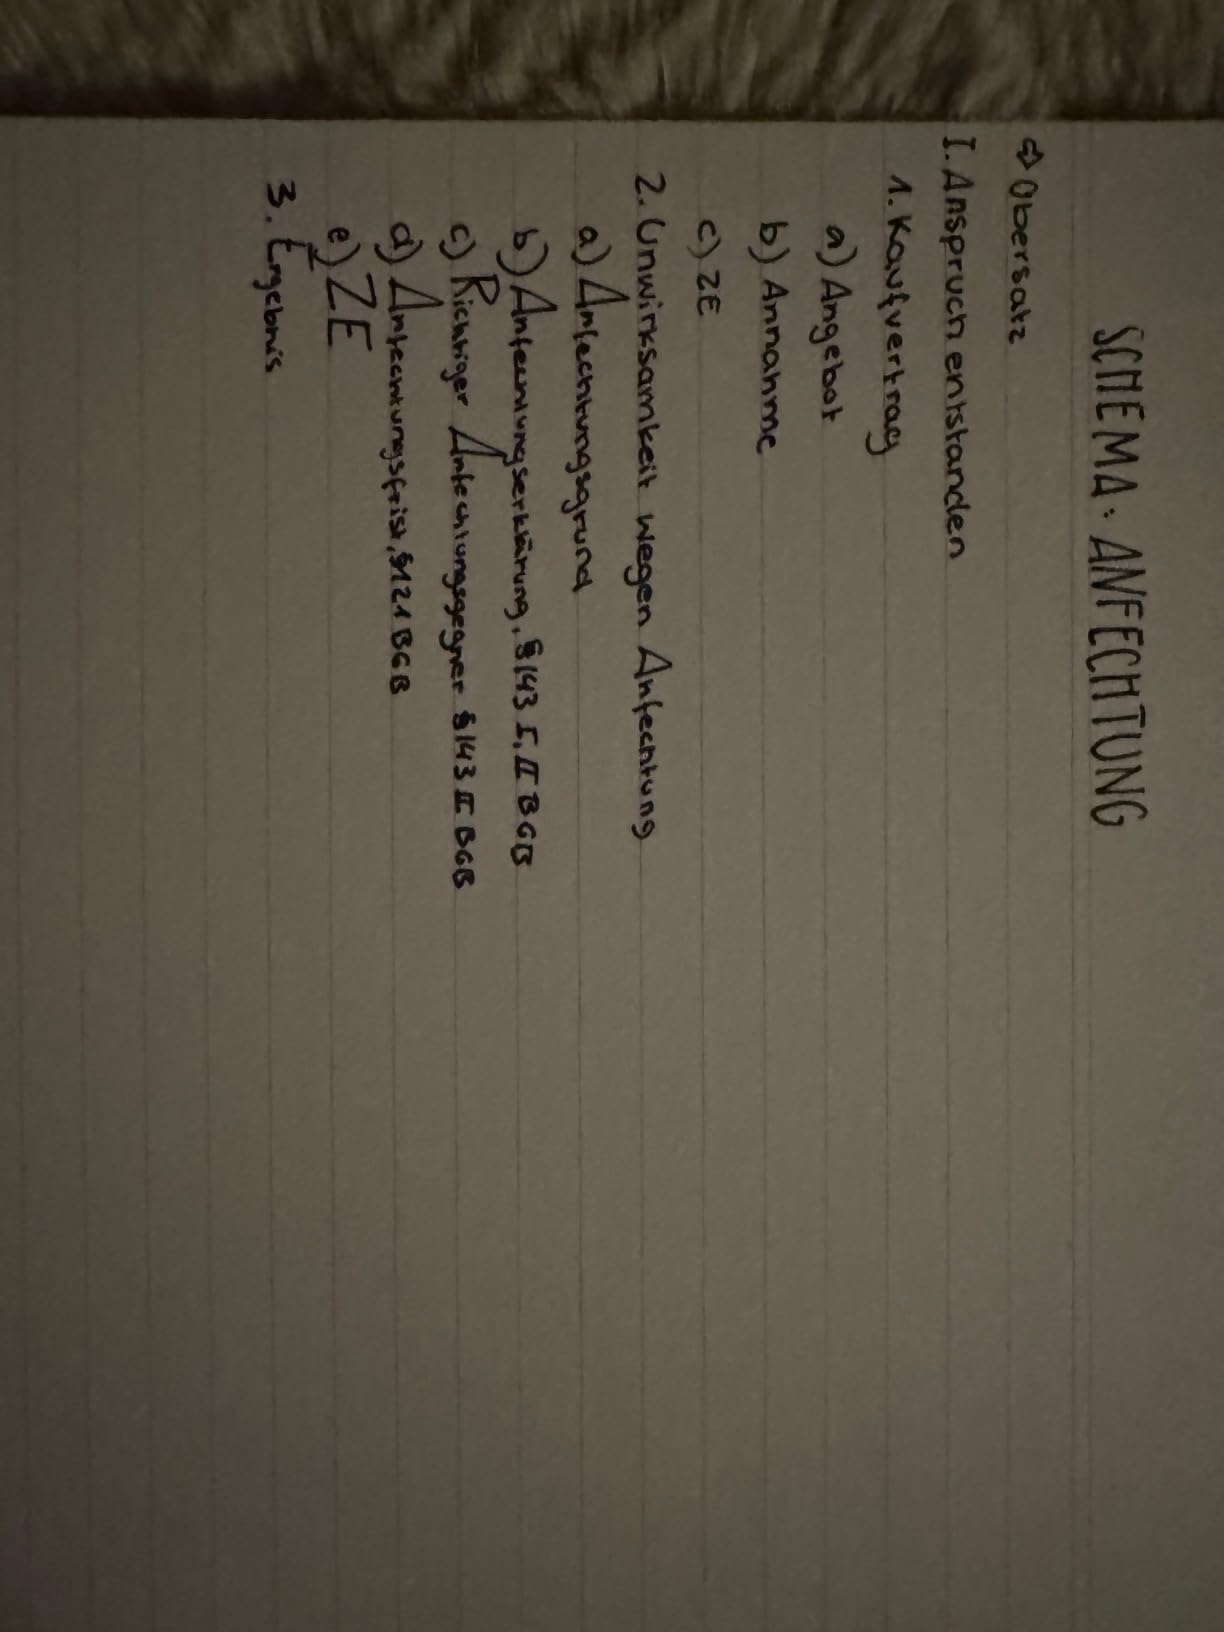 SCHEMA: ANFECHTUNG
⇨ Obersatz
I. Anspruch entstanden
1. Kaufvertrag
a) Angebot
b) Annahme
c) ZE
2. Unwirksamkeit wegen Anfechtung
a) Anfechtungsgrund
b) Anfechtungserklärung, § 143 I, II BGB
c) Richtiger Anfechtungsgegner § 143 II BGB
d) Anfechtungsfrist, § 121 BGB
e) ZE
3. Ergebnis